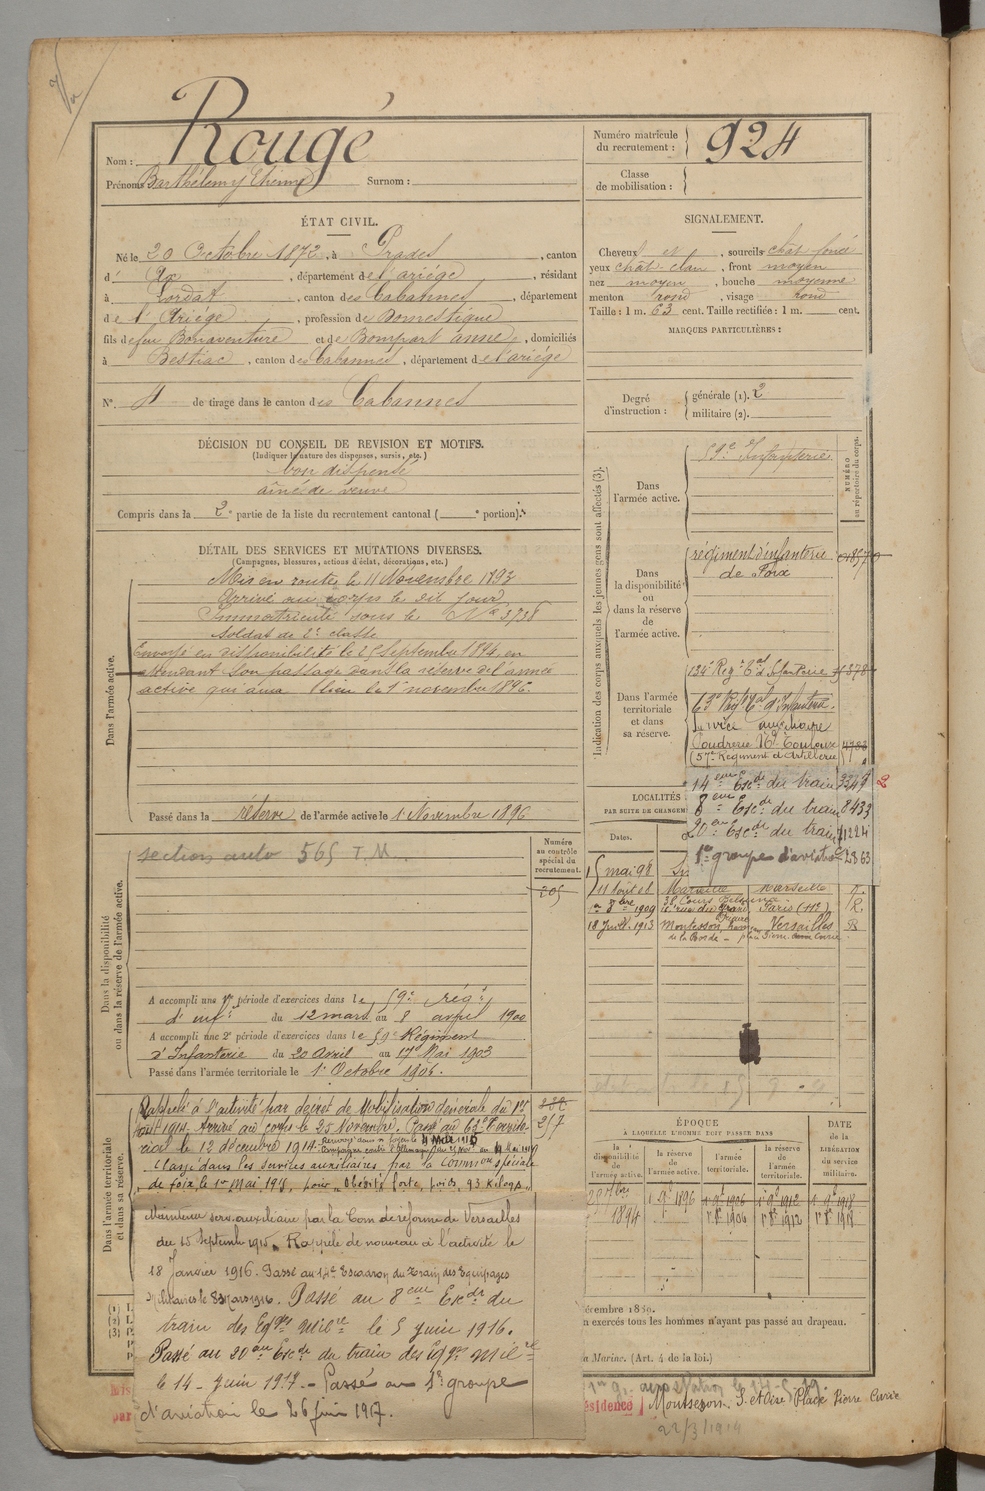 Nom : Rougé
Prénoms Barthélemy Etienne Surnom :
Numéro matricule du recrutement : 924
Classe de mobilisation :
ÉTAT CIVIL.
Né le 20 Octobre 1872, à Prades, canton
d' Ax, département de l'ariége, résidant
à Lordat, canton des Cabannes, département
de l'Ariége, profession de Domestique
fils de feu Bonaventure et de Bompart anne, domiciliés
à Bestiac, canton des Cabannes, département de l'ariége
N° 4 de tirage dans le canton des Cabannes
SIGNALEMENT.
Cheveux et, sourcils chât foncé
yeux chât. clair, front moyen
nez moyen, bouche moyenne
menton rond, visage rond
Taille : 1 m. 63 cent. Taille rectifiée : 1 m. cent.
MARQUES PARTICULIÈRES :
Degré d'instruction : générale (1). 2
militaire (2).
DÉCISION DU CONSEIL DE REVISION ET MOTIFS.
(Indiquer la nature des dispenses, sursis, etc.)
bon dispensé
aîné de veuve
Compris dans la 2e partie de la liste du recrutement cantonal ( e portion).
DÉTAIL DES SERVICES ET MUTATIONS DIVERSES.
(Campagnes, blessures, actions d'éclat, décorations, etc.)
Dans l'armée active.
Mis en route le 11 Novembre 1893
Arrivé au corps le dit jour
Immatriculé sous le No 3738
Soldat de 2e classe
Envoyé en disponibilité le 25 Septembre 1894, en
attendant son passage dans la réserve de l'armée
active qui aura lieu le 1er novembre 1896.
Passé dans la réserve de l'armée active le 1er Novembre 1896
Indication des corps auxquels les jeunes gens sont affectés (3).
NUMÉRO au répertoire du corps.
Dans l'armée active.
59e Infanterie
Dans la disponibilité ou dans la réserve de l'armée active.
régiment d'infanterie
de Foix
Dans l'armée territoriale et dans sa réserve.
134e Reg t al d'Infanterie
63e Regt al d'Infanterie
Service auxiliaire
Poudrerie Nle Toulouse
(57e Regiment d'Artillerie)
14eme Escdr du train 3349
8eme Escdr du train 8433
20eme Escdr du train 11224
1er groupe d'aviation 2863
Dans la disponibilité ou dans la réserve de l'armée active.
Section auto 565 T.M.
Numéro au contrôle spécial du recrutement.
205
A accompli une 1re période d'exercices dans le 59e régt
d'infie du 12 mars au 8 avril 1900
A accompli une 2e période d'exercices dans le 59e Régiment
d'Infanterie du 20 Avril au 17 Mai 1903
Passé dans l'armée territoriale le 1er Octobre 1906.
LOCALITÉS
PAR SUITE DE CHANGEM
Dates.
15 mai 98
11 aout 08 Marseille Marseille
1er 8bre 1909 Paris (11e) R.
18 Juill. 1913 Montesson Versailles R
Dans l'armée territoriale et dans sa réserve.
Rappelé à l'activité par décret de Mobilisation Générale du 1er
Aout 1914. Arrivé au corps le 25 Novembre. Passé au 63e Territo-
rial le 12 décembre 1914.
Classé dans les services auxiliaires par la Commion spéciale
de foix le 1er Mai 1915, pour "Obésité forte, poids 93 Kilogs"
257
Maintenu serv. auxiliaire par la Com de réforme de Versailles
du 15 Septembre 1915. Rappelé de nouveau à l'activité le
18 Janvier 1916. Passé au 14e Escadron du Train des Equipages
Militaires le Mars 1916. Passé au 8eme Escdr du
train des Eqges Milre le 5 juin 1916.
Passé au 20eme Escdr du train des Eqges Milre
le 14 Juin 1917. Passé au 1er groupe
d'aviation le 26 juin 1917.
ÉPOQUE
À LAQUELLE L'HOMME DOIT PASSER DANS
la disponibilité de l'armée active.
la réserve de l'armée active.
l'armée territoriale.
la réserve de l'armée territoriale.
DATE de la LIBÉRATION du service militaire.
1894 1er 9bre 1896 1er 9bre 1906 1er 9bre 1912 1er 9bre 1918
1er 8bre 1906 1er 8bre 1912 1er 8bre 1918
écembre 1889.
n exercés tous les hommes n'ayant pas passé au drapeau.
a Marine. (Art. 4 de la loi.)
(1)
(2)
(3)
ésidence
Montesson S. et Oise Place Pierre Curie
22/3/1914